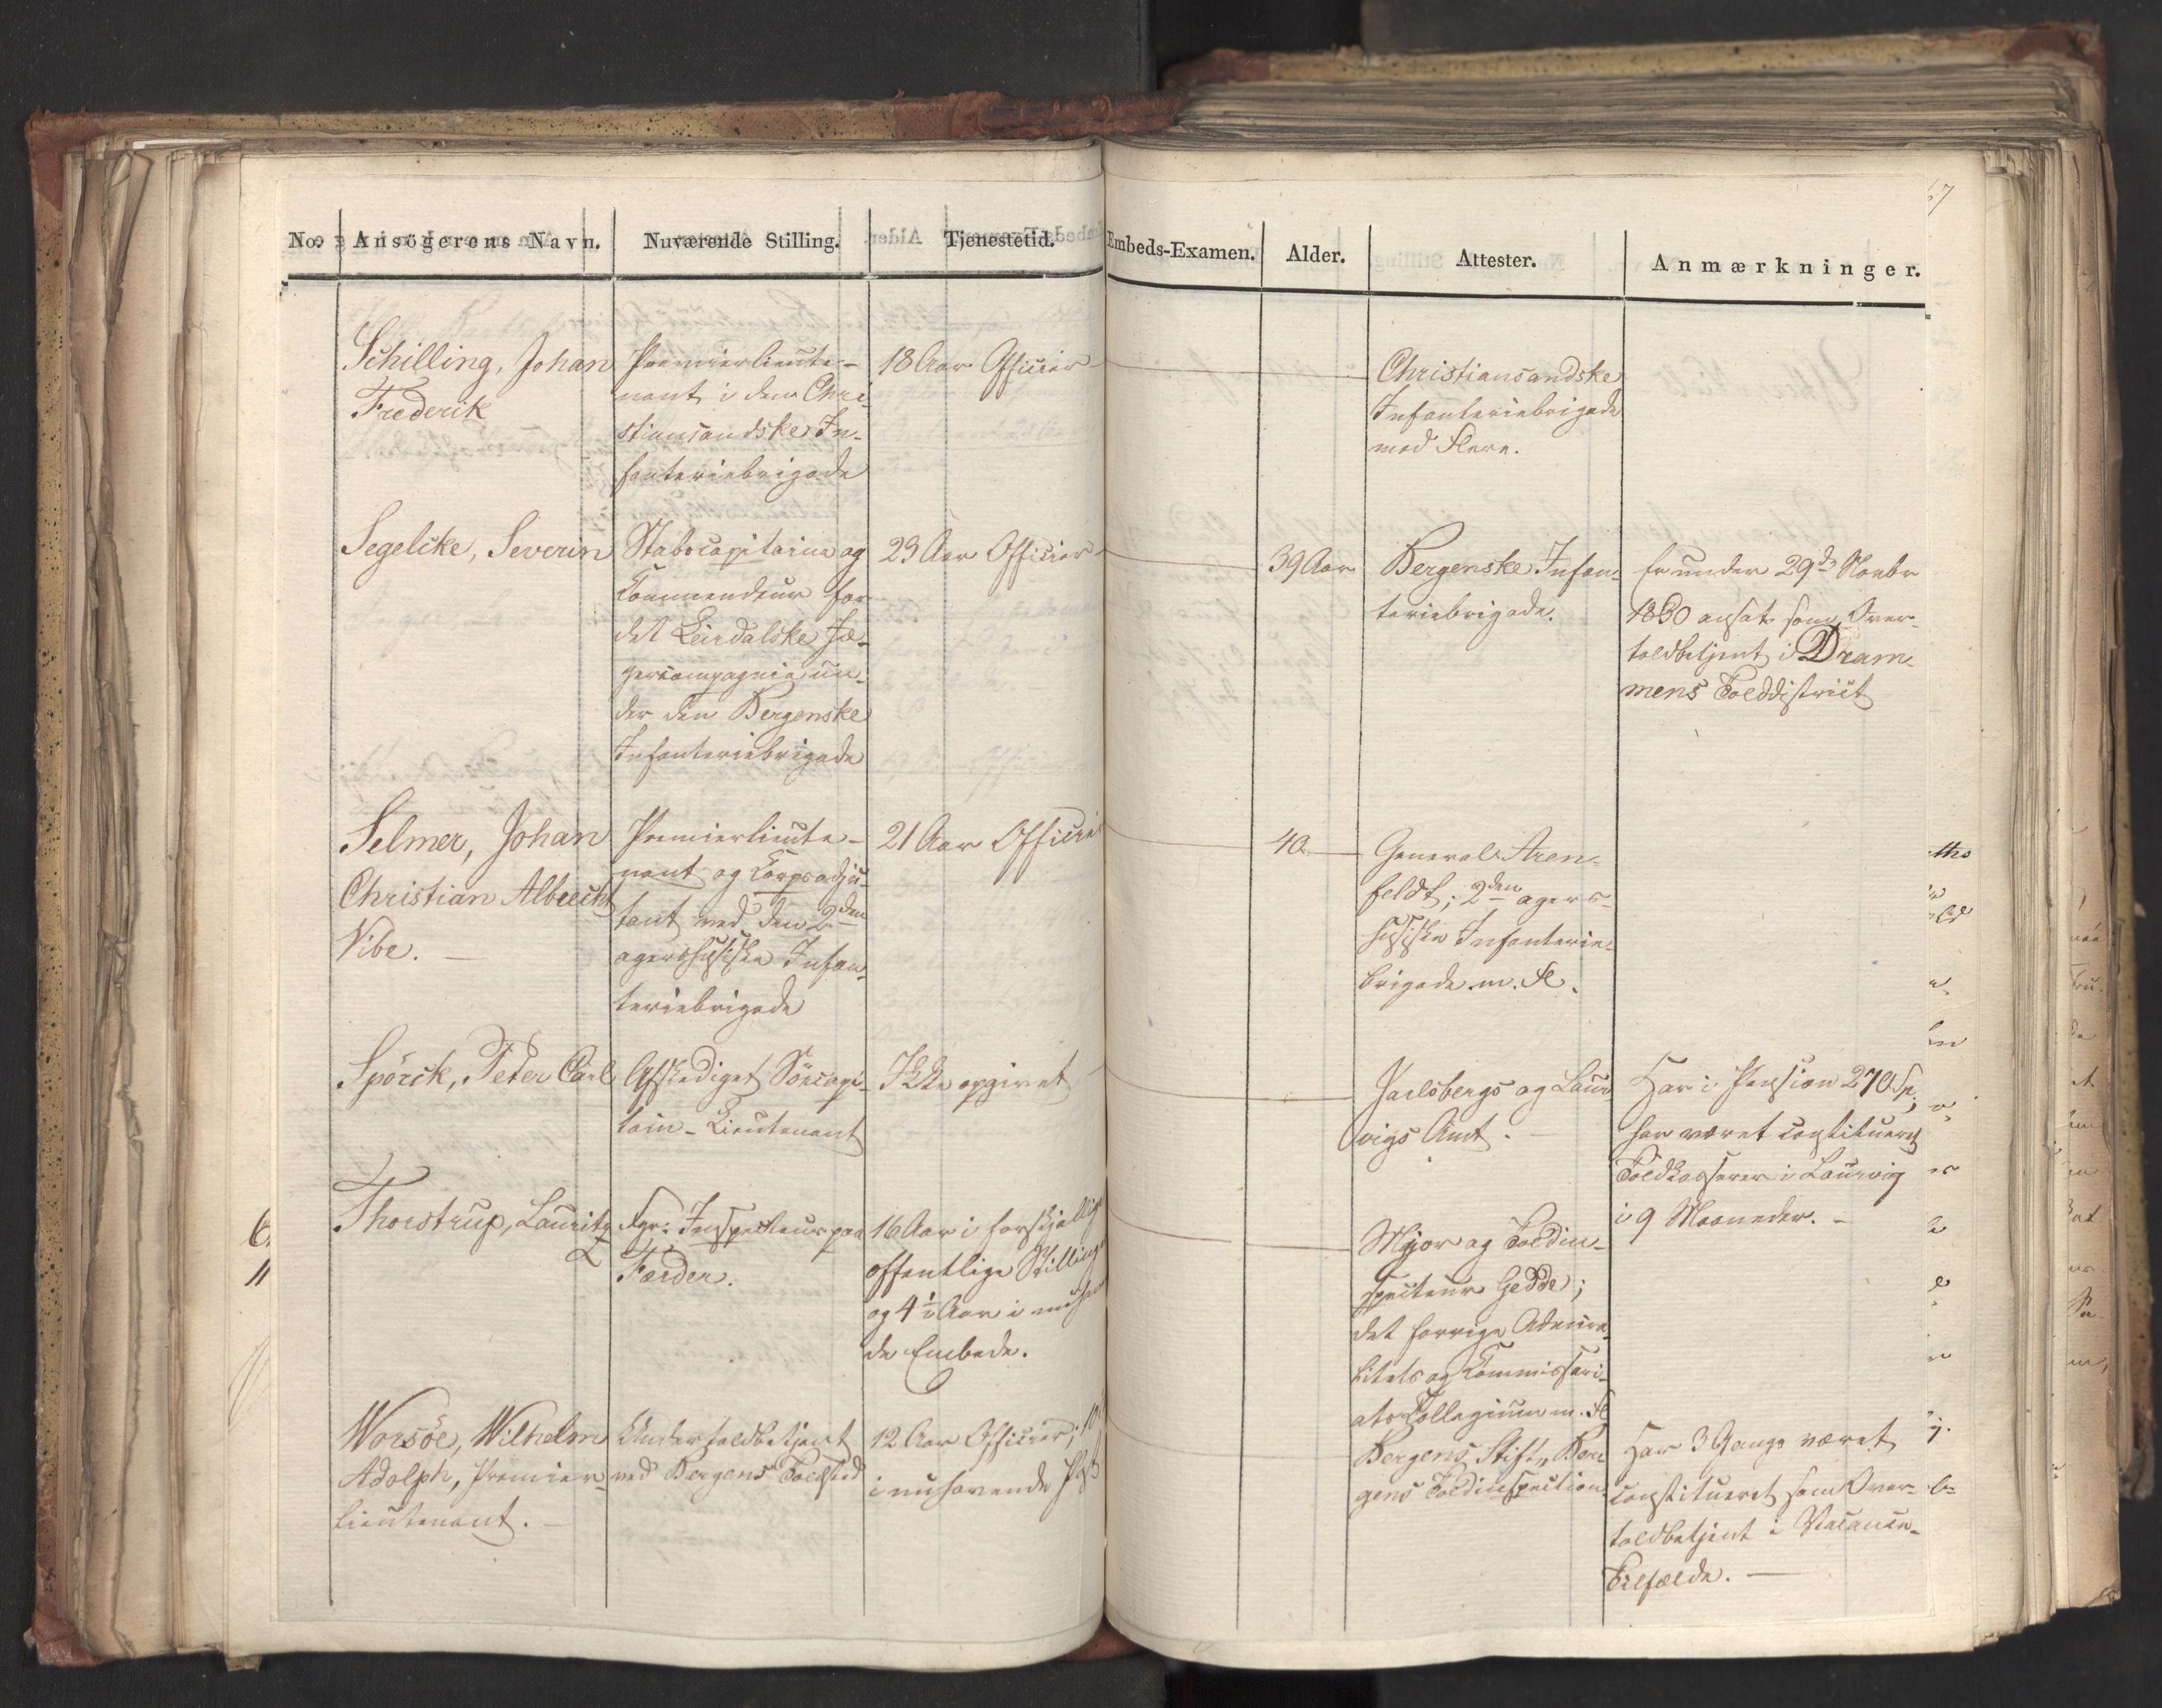 No. Ansögerens Navn. Nuværende Stilling. Tjenestetid. Embeds-Examen. Alder. Attester. Anmærkninger.
Schilling, Johan
Frederik
Premierlieute-
nant i den Chri-
stiansandske In-
fanteriebrigade
18 Aar Officier
Christiansandske
Infanteriebrigade
med Flere.
Segelcke, Severin
Stabscapitaine og
Commendeur for
det Leirdalske Jæ-
gercompagnie un-
der den Bergenske
Infanteriebrigade
23 Aar Officier
39 Aar
Bergenske Infan-
teriebrigade.
Er under 29de Novbr
1830 ansat som Over-
toldbetjent i Dram-
mens Tolddistrict
Selmer, Johan
Christian Albrecht
Vibe.
Premierlieute-
nant og Corpsadju-
tant ved den 2den
agershusiske Infan-
teriebrigade
21 Aar Officier
40
General Aren-
feldt; 2den agers-
husiske Infanterie-
brigade m. Fl.
Spörck, Peter Carl
Afskediget Söecapi-
tain-Lieutenant
Ikke opgivet
Jarlsbergs og Laur-
vigs Amt.
Har i Pension 270 Sp;
har været constitueret
Toldkasserer i Laurvig
i 9 Maaneder.
Thorstrup, Lauritz
Fyr-Inspecteur paa
Færder.
16 Aar i forskjellige
offentlige Stillinger
og 4½ Aar i nuhaven-
de Embede.
Major og Toldin-
specteur Gedde;
det forrige Admira-
litets og Commissari-
ats Collegium m. Fl
Worsöe, Wilhelm
Adolph, Premier-
lieutenant.
Undertoldbetjent
ved Bergens Toldsted
12 Aar Officier; 10
i nuhavende Post
Bergens Stift, Ber-
gens Toldinspection
Har 3 Gange været
constitueret som Over-
toldbetjent i Vacance-
Tilfælde.